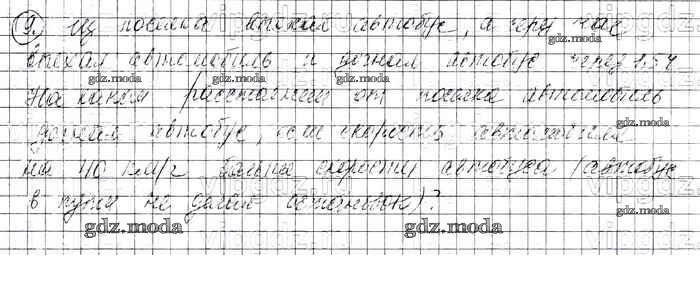 9. Из поселка выехал автобус, а через час
выехал автомобиль и догнал автобус через 1.5 ч
На каком расстоянии от поселка автомобиль
догнал автобус, если скорость автомобиля
на 40 км/ч больше скорости автобуса (автобус
в пути не делал остановок)?
gdz.moda
gdz.moda
gdz.moda
gdz.moda
gdz.moda
gdz.moda
gdz.moda
gdz.moda